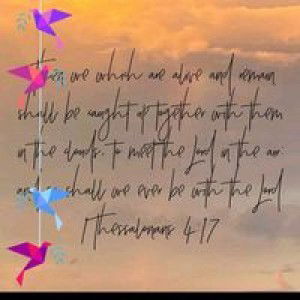 Then we which are alive and remain
shall be caught up together with them
in the clouds, to meet the Lord in the air:
and so shall we ever be with the Lord
1 Thessalonians 4:17